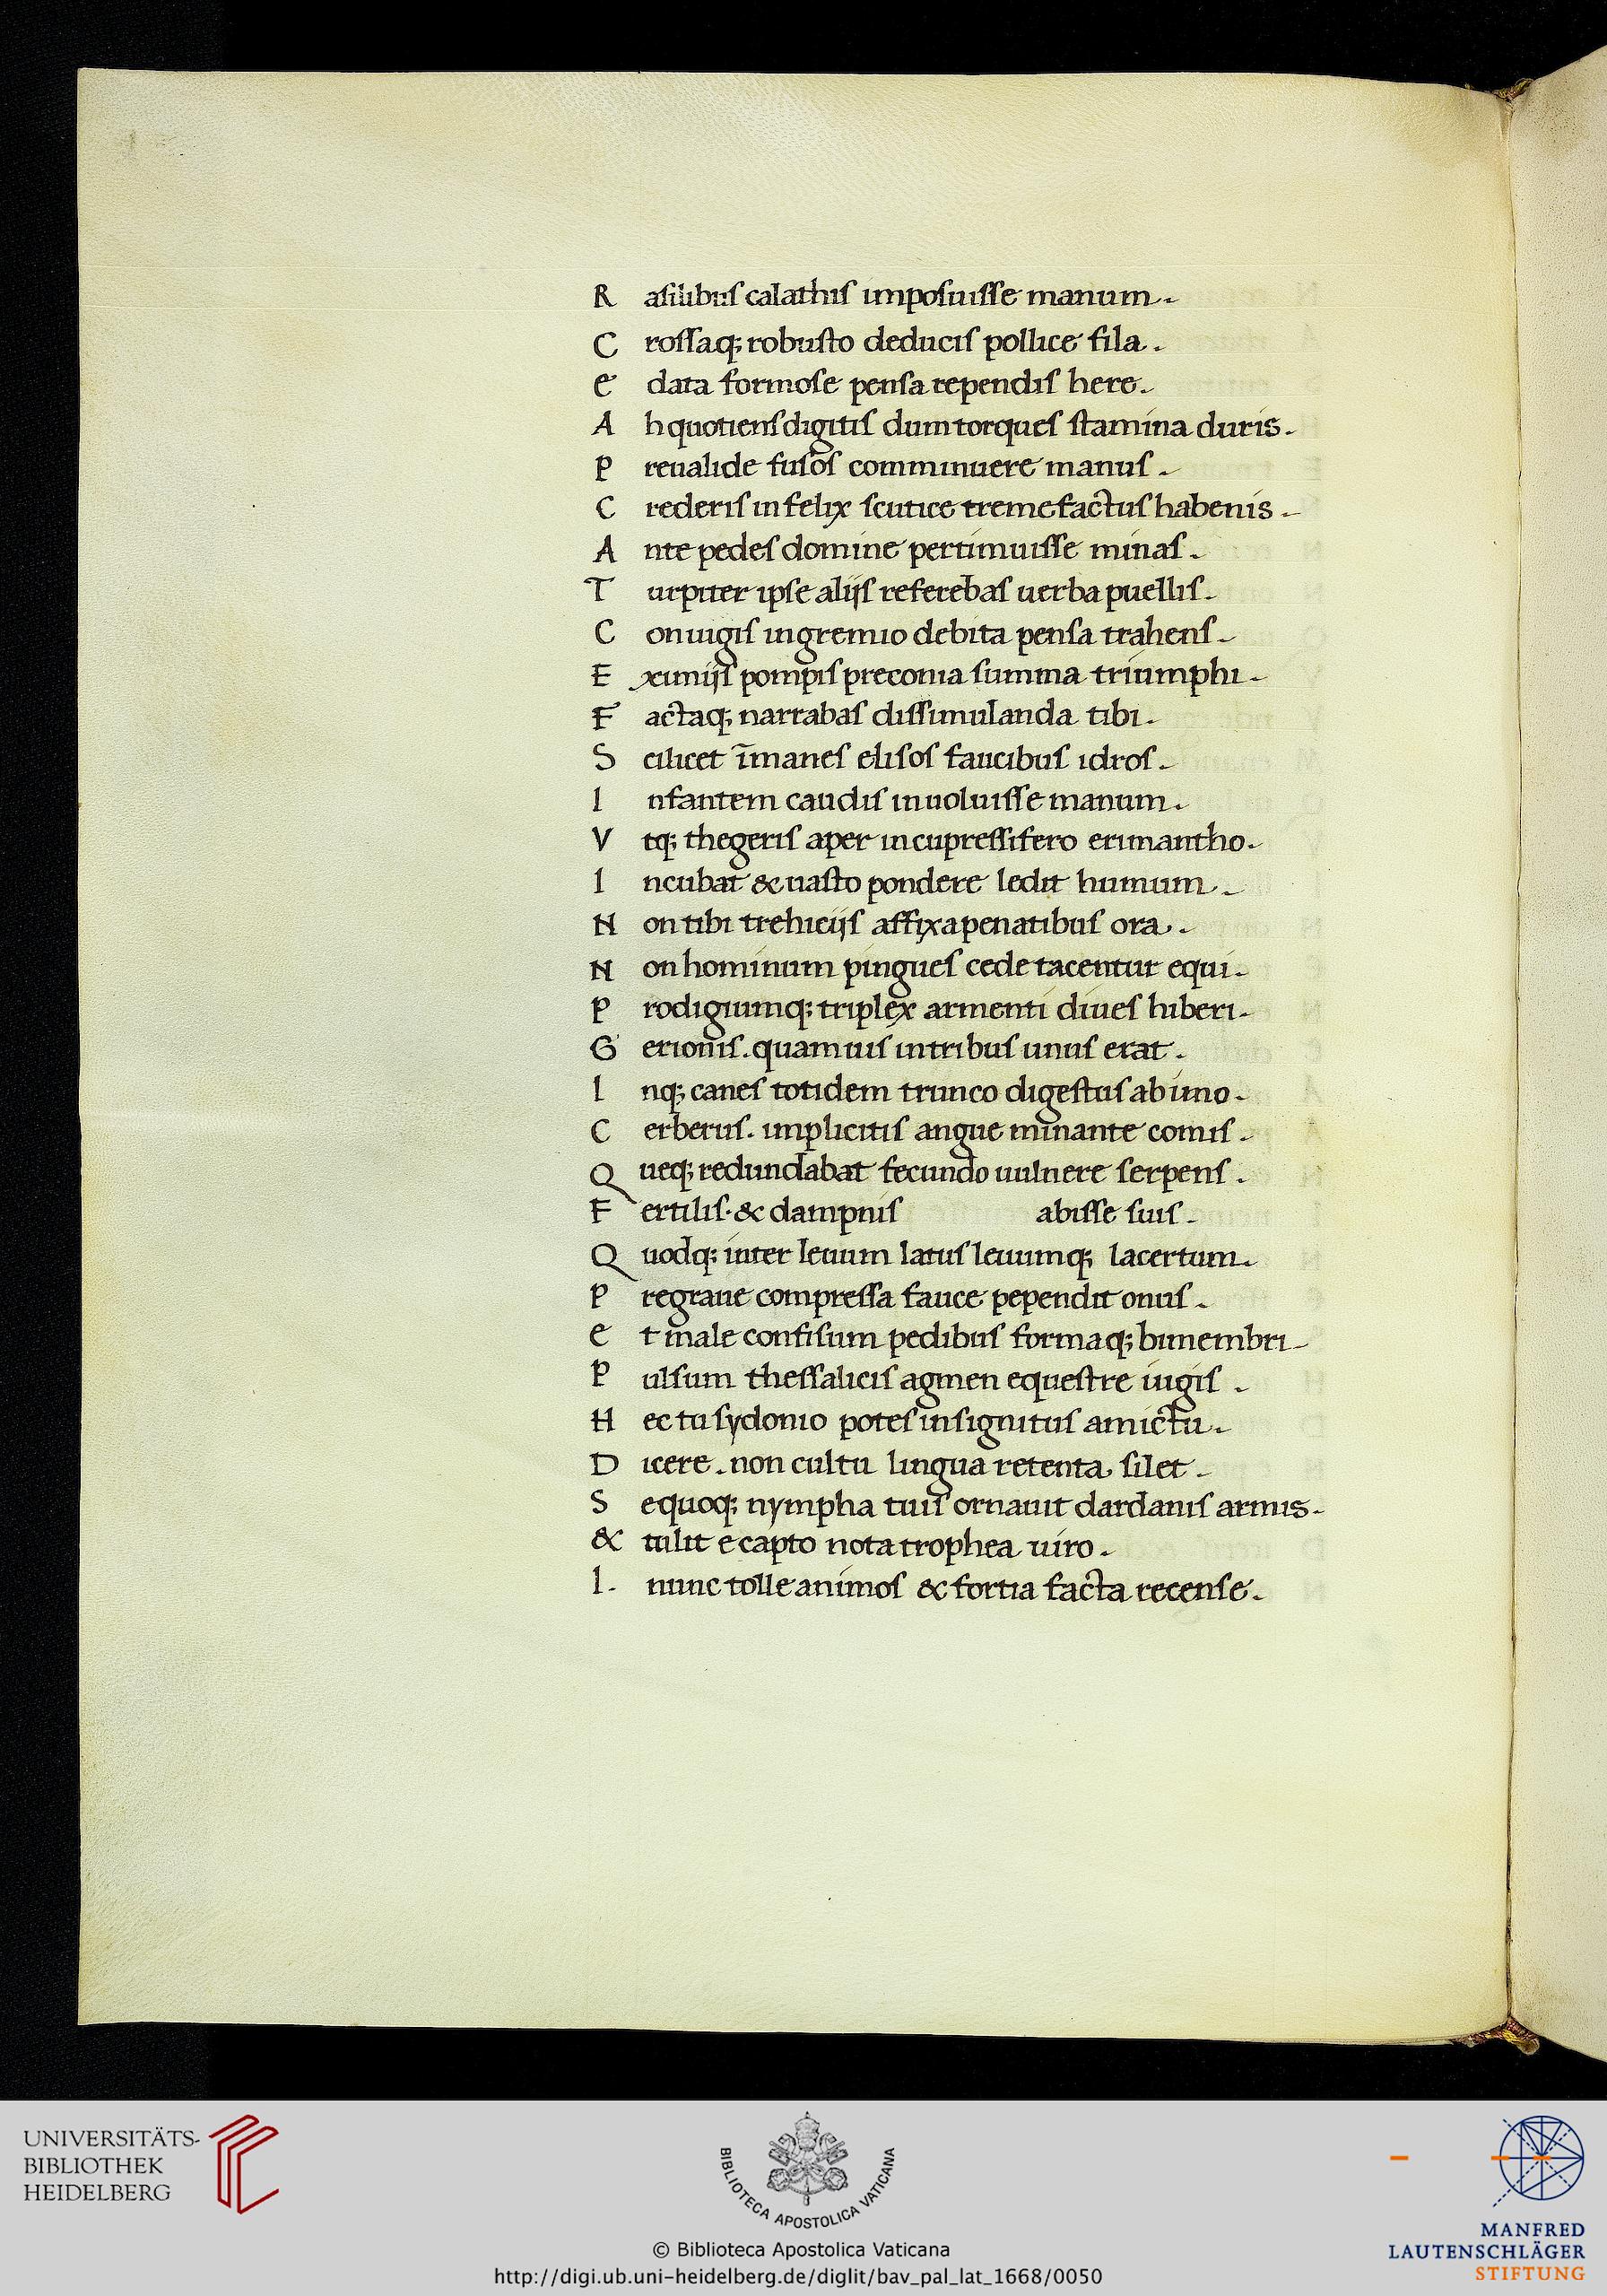 R asilibus calathis imposuisse manum.
C rossaq; robusto deducis pollice fila.
e data formose pensa rependis here.
A h quotiens digitis dum torques stamina duris.
P reualide fusos comminuere manus.
C rederis infelix scutice tremefactus habenis.
A nte pedes domine pertimuisse minas.
T urpiter ipse alijs referebas uerba puellis.
C oniugis in gremio debita pensa trahens.
E ximijs pompis preconia summa triumphi.
F actaq; narrabas dissimulanda tibi.
S cilicet īmanes elisos faucibus idros.
I nfantem caudis inuoluisse manum.
V tq; thegeris aper in cupressifero erimantho.
I ncubat & uasto pondere ledit humum.
N on tibi trehicijs affixa penatibus ora.
N on hominum pingues cede tacentur equi.
P rodigiumq; triplex armenti diues hiberi.
G erionis. quamuis in tribus unus erat.
I nq; canes totidem trunco digestus ab uno.
C erberus. implicitis angue minante comis.
Q ueq; redundabat fecundo uulnere serpens.
F ertilis. & dampnis abisse suis.
Q uodq; inter leuum latus leuumq; lacertum.
P regraue compressa fauce pependit onus.
e t male confisum pedibus formaq; bimembri.
P ulsum thessalicis agmen equestre iugis.
H ec tu sydonio potes insignitus amictu.
D icere. non cultu lingua retenta silet.
S equoq; nympha tuis ornauit dardanis armis.
& tulit e capto nota trophea uiro.
I. nunc tolle animos & fortia facta recense.
UNIVERSITÄTS-
BIBLIOTHEK
HEIDELBERG
BIBLIOTECA APOSTOLICA VATICANA
© Biblioteca Apostolica Vaticana
http://digi.ub.uni-heidelberg.de/diglit/bav_pal_lat_1668/0050
MANFRED
LAUTENSCHLÄGER
STIFTUNG